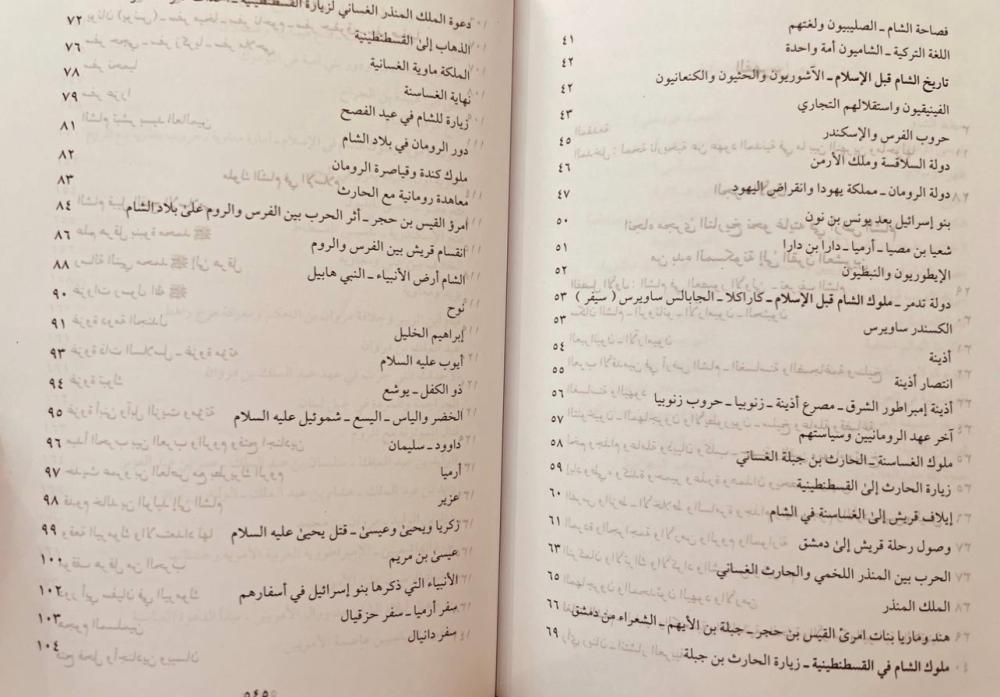 فصاحة الشام ـ الصليبيون ولغتهم
اللغة التركية ـ الشاميون أمة واحدة ٤١
تاريخ الشام قبل الإسلام ـ الآشوريون والحثيون والكنعانيون ٤٢
الفينيقيون واستقلالهم التجاري ٤٢
حروب الفرس والإسكندر ٤٣
دولة السلاقسة وملك الأرمن ٤٥
دولة الرومان ـ مملكة يهودا وانقراض اليهود ٤٦
بنو إسرائيل بعد يونس بن نون ٤٧
شعيا بن مصيا ـ أرميا ـ دارا بن دارا ٥٠
الإيطوريون والنبطيون ٥١
دولة تدمر ـ ملوك الشام قبل الإسلام ـ كاراكلا ـ الجابالس ساويرس ( سيفر ) ٥٢
الكسندر ساويرس ٥٣
أذينة ٥٣
انتصار أذينة ٥٤
أذينة إمبراطور الشرق ـ مصرع أذينة ـ زنوبيا ـ حروب زنوبيا ٥٥
آخر عهد الرومانيين وسياستهم ٥٦
ملوك الغساسنة ـ الحارث بن جبلة الغساني ٥٨
زيارة الحارث إلى القسطنطينية ٥٩
إيلاف قريش إلى الغساسنة في الشام ٦٠
وصول رحلة قريش إلى دمشق ٦١
الحرب بين المنذر اللخمي والحارث الغساني ٦٣
الملك المنذر ٦٥
هند وماريا بنات امرئ القيس بن حجر ـ جبلة بن الأيهم ـ الشعراء من دمشق ٦٦
ملوك الشام في القسطنطينية ـ زيارة الحارث بن جبلة ٦٩
دعوة الملك المنذر الغساني لزيارة القسطنطينية
الذهاب إلى القسطنطينية ٧٢
الملكة ماوية الغسانية ٧٦
نهاية الغساسنة ٧٨
زيارة للشام في عيد الفصح ٧٩
دور الرومان في بلاد الشام ٨١
ملوك كندة وقياصرة الرومان ٨٢
معاهدة رومانية مع الحارث ٨٣
امرؤ القيس بن حجر ـ أثر الحرب بين الفرس والروم على بلاد الشام ٨٤
انقسام قريش بين الفرس والروم
الشام أرض الأنبياء ـ النبي هابيل ٨٨
نوح ٩٠
إبراهيم الخليل ٩١
أيوب عليه السلام ٩٣
ذو الكفل ـ يوشع ٩٤
الخضر والياس ـ اليسع ـ شموئيل عليه السلام ٩٥
داوود ـ سليمان ٩٦
أرميا ٩٧
عزير ٩٨
زكريا ويحيى وعيسى ـ قتل يحيى عليه السلام ٩٩
عيسى بن مريم ١٠١
الأنبياء التي ذكرها بنو إسرائيل في أسفارهم ١٠٢
سفر أرميا ـ سفر حزقيال ١٠٣
سفر دانيال ١٠٤
٥٤٥